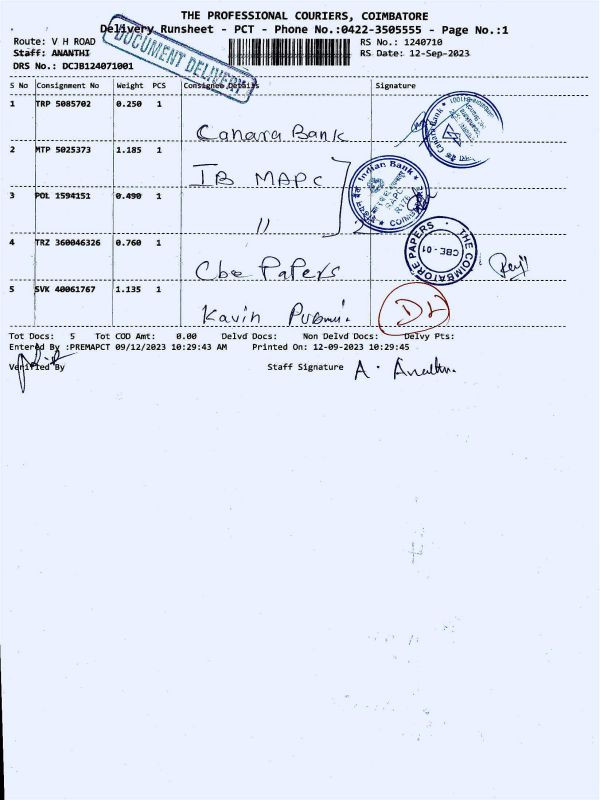 THE PROFESSIONAL COURIERS, COIMBATORE
Delivery Runsheet - PCT - Phone No.:0422-3505555 - Page No.:1
DOCUMENT DELIVERY
Route: V H ROAD RS No.: 1240710
Staff: ANANTHI RS Date: 12-Sep-2023
DRS No.: DCJB124071001
S No Consignment No Weight PCS Consignee Details Signature
1 TRP 5085702 0.250 1
Canara Bank
Canara Bank
2 MTP 5025373 1.185 1
IB MAPC
Indian Bank
3 POL 1594151 0.490 1
"
4 TRZ 360046326 0.760 1
Cbe Papers
THE COIMBATORE PAPERS
CBE - 01
5 SVK 40061767 1.135 1
Kavin
DL
Tot Docs: 5 Tot COD Amt: 0.00 Delvd Docs: Non Delvd Docs: Delvy Pts:
Entered By :PREMAPCT 09/12/2023 10:29:43 AM Printed On: 12-09-2023 10:29:45
Verified By Staff Signature A.